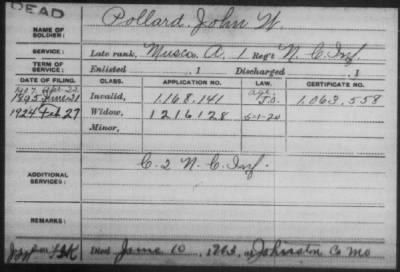 DEAD
NAME OF SOLDIER: Pollard, John W.
SERVICE: Late rank, Musc. A. 1 Reg't N. C. Inf.
TERM OF SERVICE: Enlisted , 1 Discharged , 1
DATE OF FILING. CLASS. APPLICATION NO. CERTIFICATE NO.
1895 June 21 Invalid, 1,168,141 1,063,558
1924 Feb 27 Widow, 1216128 5-1-20
Minor,
ADDITIONAL SERVICES: C. 2 N. C. Inf.
REMARKS:
Died June 10, 1923, at Johnston Co Mo